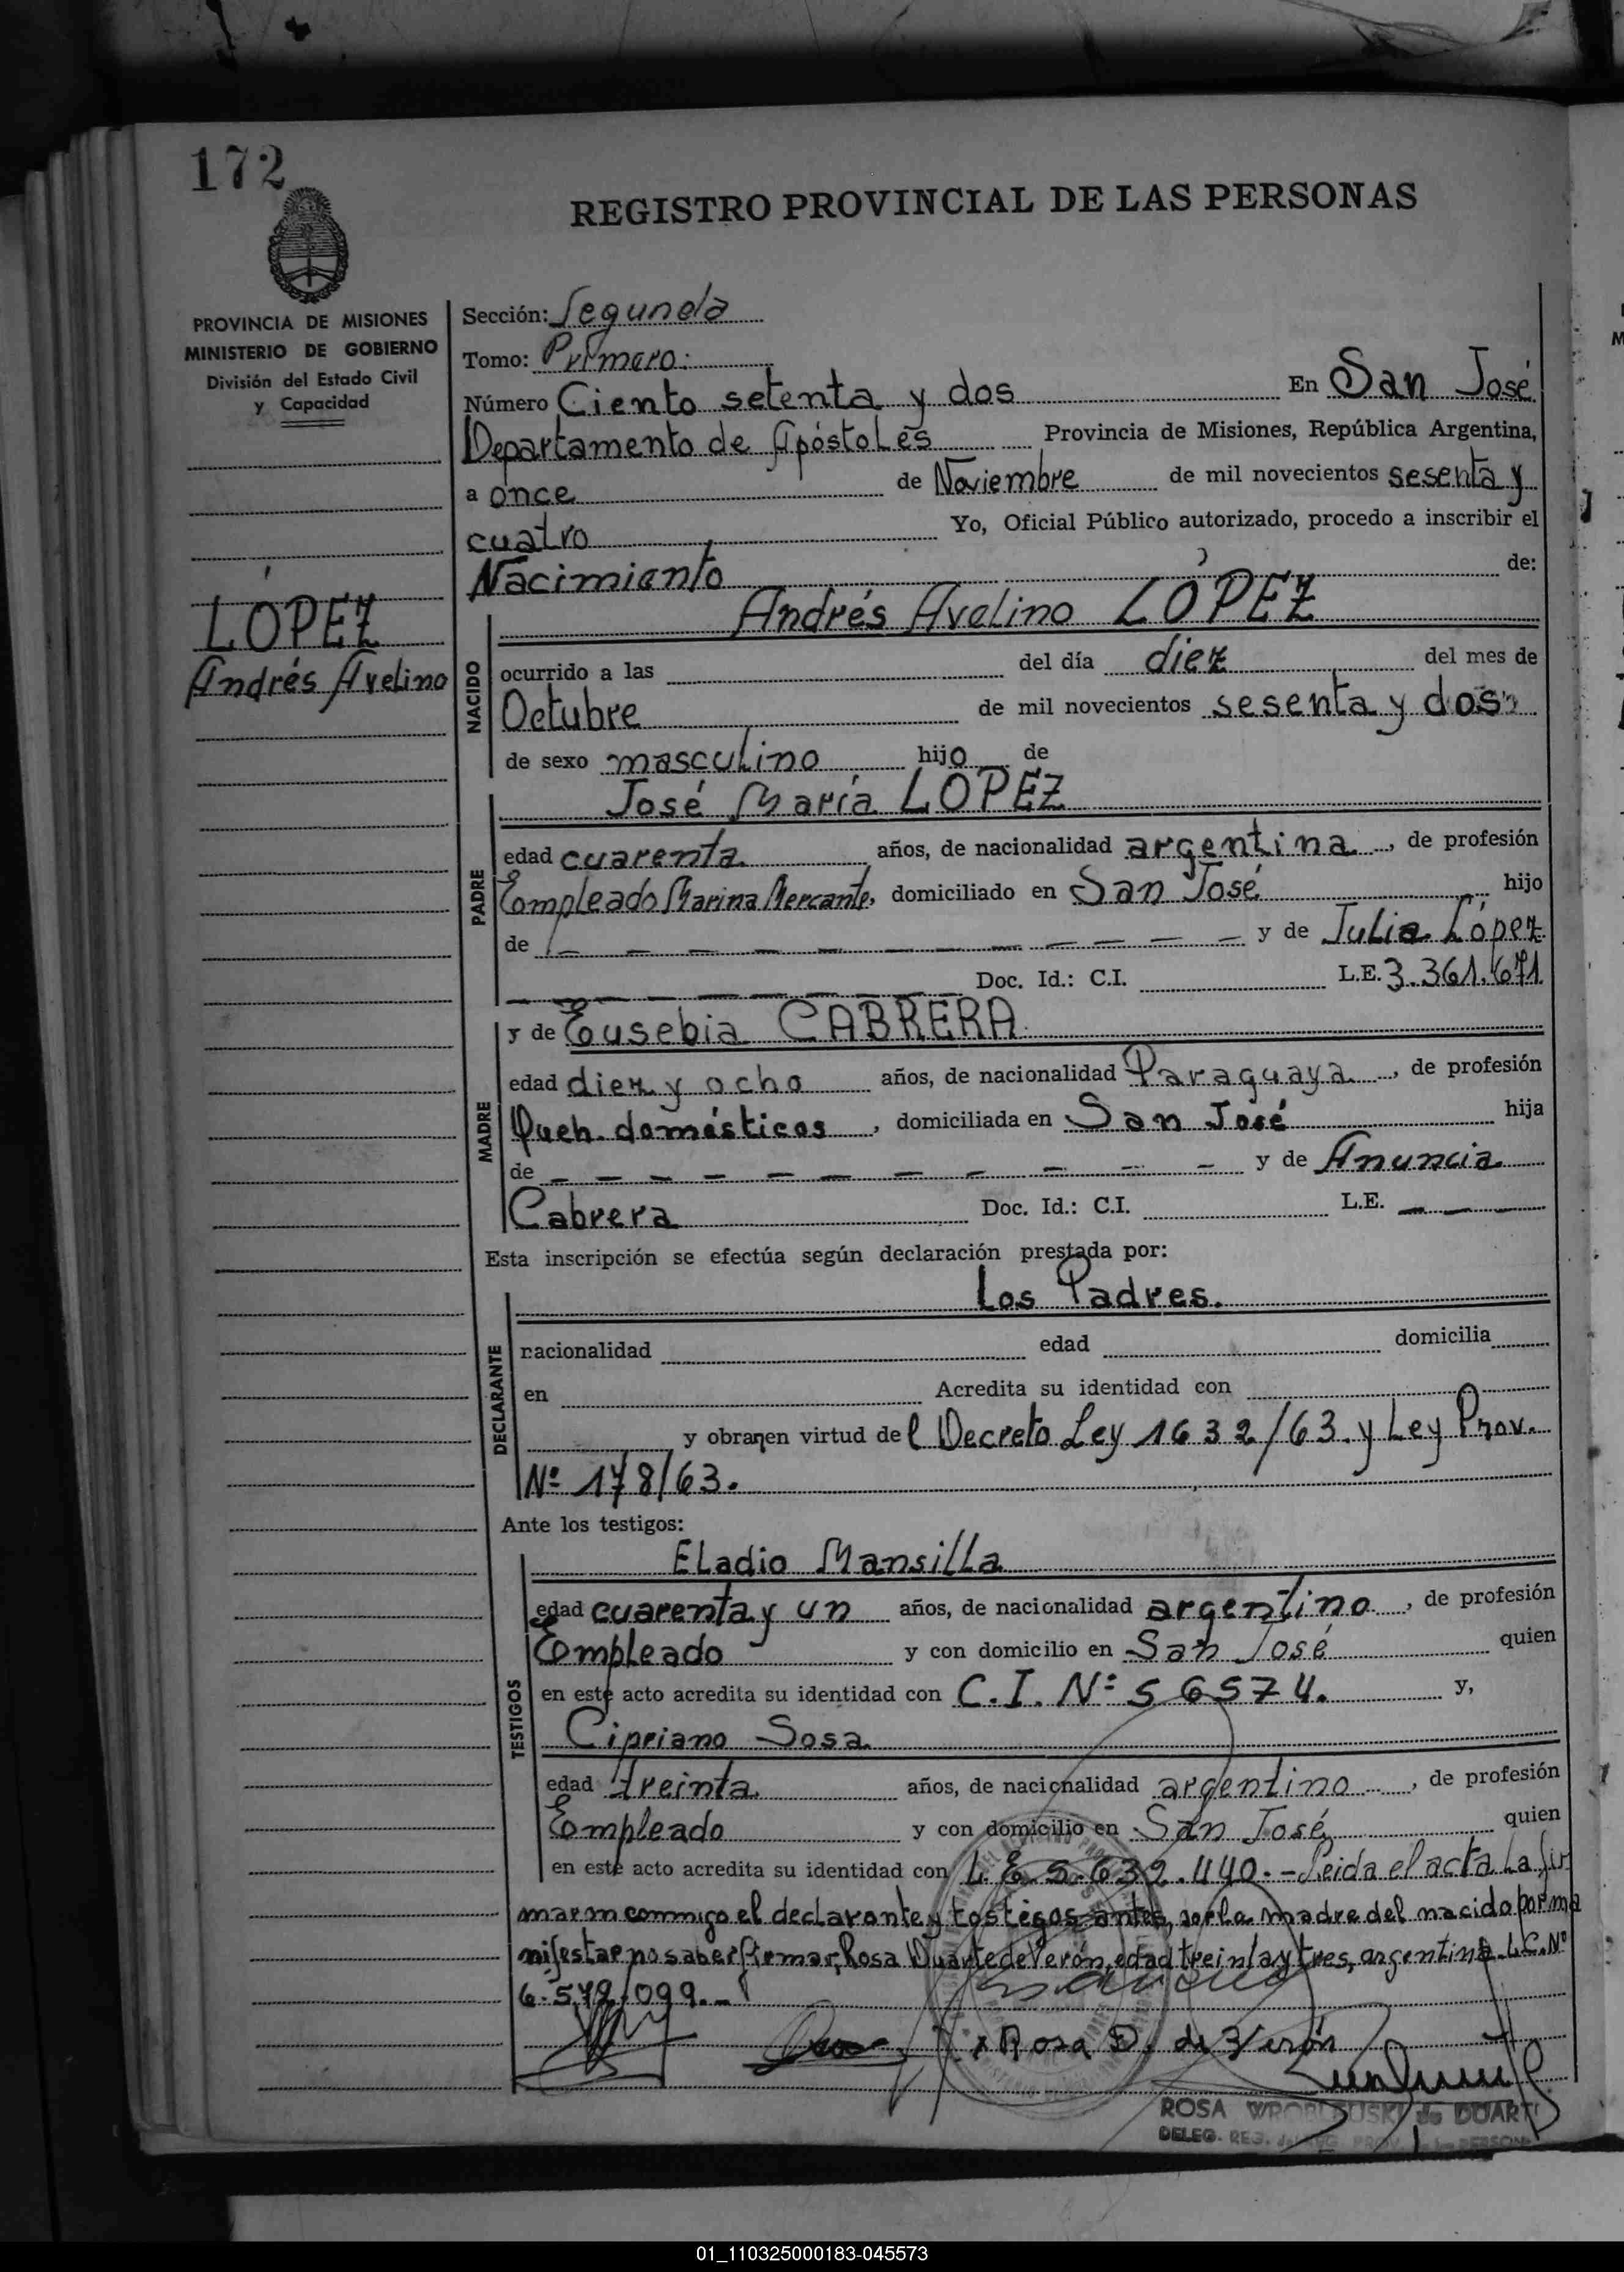 172
REGISTRO PROVINCIAL DE LAS PERSONAS
PROVINCIA DE MISIONES
MINISTERIO DE GOBIERNO
División del Estado Civil
y Capacidad
LÓPEZ
Andrés Avelino
Sección: Segunda
Tomo: Primero.
Número Ciento setenta y dos En San José
Departamento de Apóstoles Provincia de Misiones, República Argentina,
a once de Noviembre de mil novecientos sesenta y
cuatro Yo, Oficial Público autorizado, procedo a inscribir el
Nacimiento de:
NACIDO
Andrés Avelino LÓPEZ
ocurrido a las del día diez del mes de
Octubre de mil novecientos sesenta y dos
de sexo masculino hijo de
PADRE
José María LOPEZ
edad cuarenta años, de nacionalidad argentina, de profesión
Empleado Marina Mercante, domiciliado en San José hijo
de — — — — — — — — y de Julia López
— — — — — Doc. Id.: C.I. L.E. 3.361.671
MADRE
y de Eusebia CABRERA
edad diez y ocho años, de nacionalidad Paraguaya, de profesión
Queh. domésticos, domiciliada en San José hija
de — — — — — — — — — y de Anuncia
Cabrera Doc. Id.: C.I. L.E. — — —
Esta inscripción se efectúa según declaración prestada por:
DECLARANTE
Los Padres.
nacionalidad edad domicilia
en Acredita su identidad con
y obran en virtud del Decreto Ley 1632/63 y Ley Prov.
Nº 178/63.
Ante los testigos:
TESTIGOS
Eladio Mansilla
edad cuarenta y un años, de nacionalidad argentino, de profesión
Empleado y con domicilio en San José quien
en este acto acredita su identidad con C.I. Nº 56574. y,
Cipriano Sosa
edad treinta años, de nacionalidad argentino, de profesión
Empleado y con domicilio en San José quien
en este acto acredita su identidad con L.E. 5.632.440.- Leida el acta la fir
man conmigo el declarante y testigos antes, por la madre del nacido por ma
nifestar no saber firmar, Rosa Duarte de Verón, edad treinta y tres, argentina L.C. Nº
6.572.099.-
x Rosa D. de Verón
ROSA WROBLEUSKI de DUARTE
DELEG. REG. PROV. PERSON
01_110325000183-045573